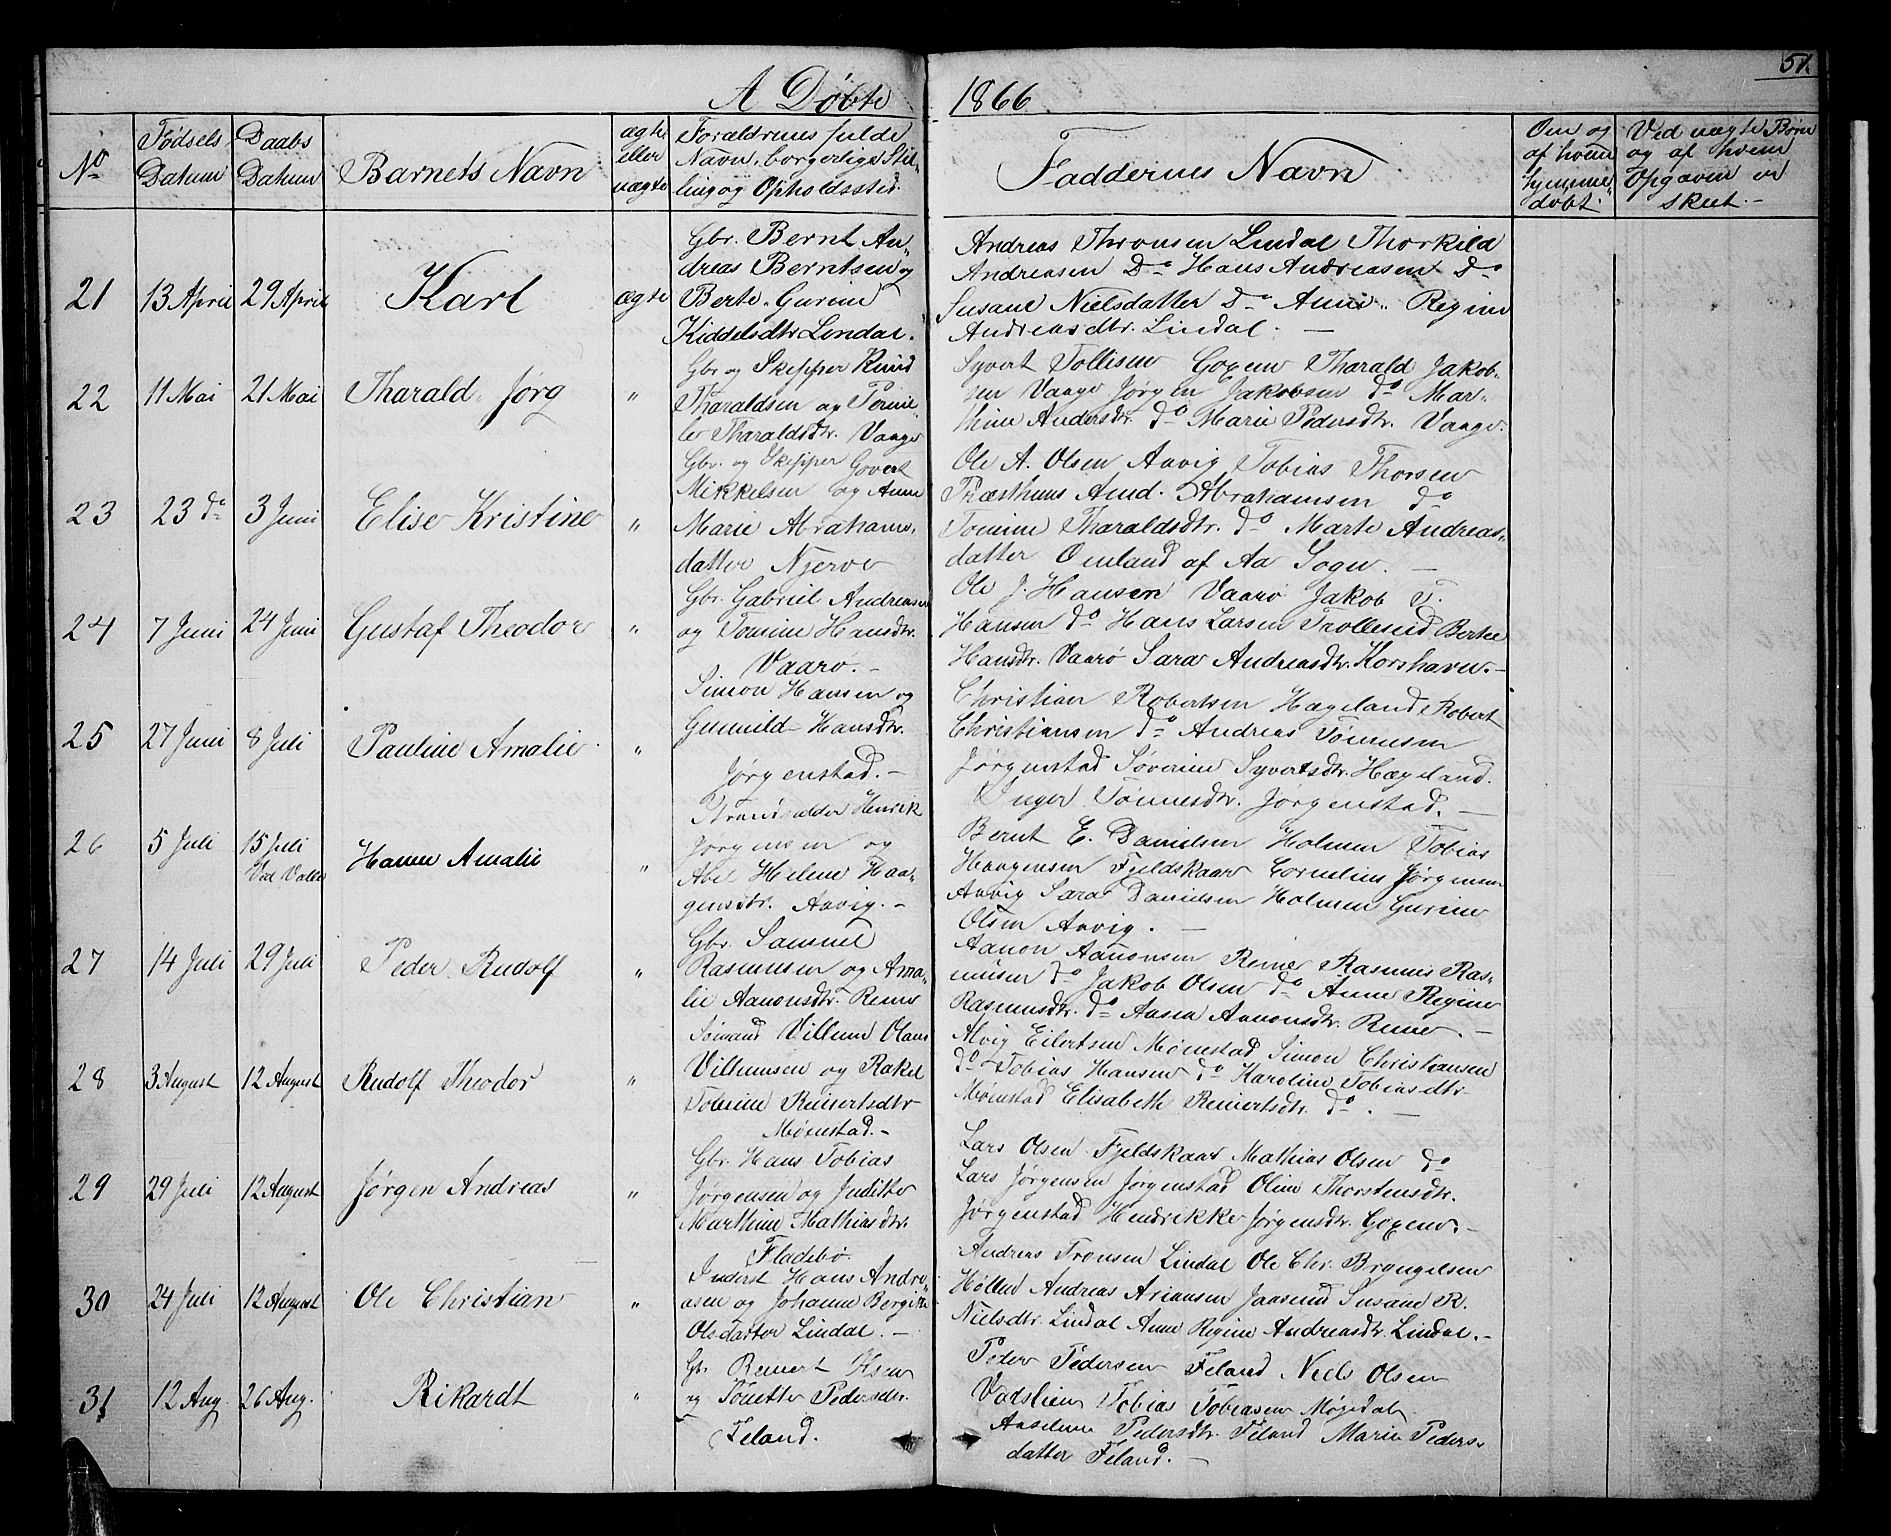 51.
A Døbte 1866.
No
Fødsels Datum
Daabs Datum
Barnets Navn
ægte eller uægte
Forældrenes fulde Navn, borgerlige Stilling og Opholdssted.
Faddernes Navn
Om og af hvem hjemmedøbt.
Ved uægte Børn og af hvem Opgaven er skeet.-
21 13 April 29 April Karl ægte
Gbr. Bernt An„
dreas Berntsen og
Berte Gurine
Kiddelsdtr Lindal.
Andreas Thronsen Lindal Thorkild
Andreasen Do Hans Andreasen Do
Susane Nielsdatter Do Anne Regine
Andreasdtr. Lindal. —
22 11 Mai 21 Mai Tharald Jørg „
Gbr og Skipper Knud
Tharaldsen og Tomil„
le Tharaldsdtr. Vaage
Syvert Tollisen Goxem Tharald Jakob„
sen Vaage Jørgen Jakobsen do Mar„
thine Andersdtr. do Marie Pedersdtr. Vaage.
23 23 do 3 Juni Elise Kristine „
Gbr. og Skipper Govert
Mikkelsen og Anne
Marie Abrahams„
datter Njerve
Ole A. Olsen Aavig Tobias Thorsen
Præsthuus Amd. Abrahamsen do
Tomine Tharaldsdtr. do Marte Andreas„
datter Omland af Aa Sogn. —
24 7 Juni 24 Juni Gustaf Theodor „
Gbr. Gabriel Andreasen
og Tomine Hansdtr.
Vaarø.-
Ole J. Hansen Vaarø Jakob T.
Hansen do Hans Larsen Trollesund Berthe
Hansdtr. Vaarø Sara Andreasdtr. Korshavn.-
25 27 Juni 8 Juli Pauline Amalie „
Simon Hansen og
Gunnild Hansdtr.
Jørgenstad.-
Christian Robertsen Hægeland Robert
Christiansen do Andreas Tønnesen
Jørgenstad Søverine Syvertsdtr. Hægeland.
Inger Tønnesdtr. Jørgenstad. —
26 5 Juli 15 Juli Hanne Amalie „
Ved Valle
Strandsidder Henrik
Jørgensen og
Abel Helene Haa„
gensdtr. Aavig.-
Bernt E. Danielsen Holmen Tobias
Haagensen Fjeldskaar Cornelius Jørgensen
Aavig Sara Danielsen Holmen Gurine
Olsen Aavig. —
27 14 Juli 29 Juli Peder Rudolf „
Gbr. Samuel
Rasmusen og Ama„
lie Aanonsdtr. Reme
Aanon Aanonsen Reme Rasmus Ras„
musen do Jakob Olsen do Anne Regine
Rasmusdtr. do Aasea Aanonsdtr. Reme. —
28 3 August 12 August Rudolf Theodor „
Sømand Villum Olaus
Villumsen og Rakel
Tobine Reinertsdtr
Mønestad.-
Alvig Eilertsen Mønestad Simon Christiansen
do Tobias Hansen do Karoline Tobiasdtr
Mønestad Elisabeth Reinertsdtr. do. —
29 29 Juli 12 August Jørgen Andreas „
Gbr. Hans Tobias
Jørgensen og Judithe
Marthine Mathiasdtr.
Fladebø.
Lars Olsen Fjeldskaar Mathias Olsen do
Lars Jørgensen Jørgenstad Oline Thorstensdtr.
Jørgenstad Hendrikke Jørgensdtr. Goxem.-
30 24 Juli 12 August Ole Christian „
Inderst Hans Andre„
asen og Johanne Bergitte
Olsdatter Lindal. -
Andreas Tronsen Lindal Ole Chr. Bryngelsen
Høllen Andreas Ariansen Jaasund Susane R.
Nielsdtr. Lindal Anne Regine Andreasdtr. Lindal.-
31 12 Aug. 26 Aug. Rikardt „
Gb. Reinert Olsen
og Tonette Pedersdtr.
Feland.
Peder Pedersen Feland Niels Olsen
Vadslien Tobias Tobiasen Møgedal
Aaselene Pedersdtr. Feland Marie Peders„
datter Feland. —